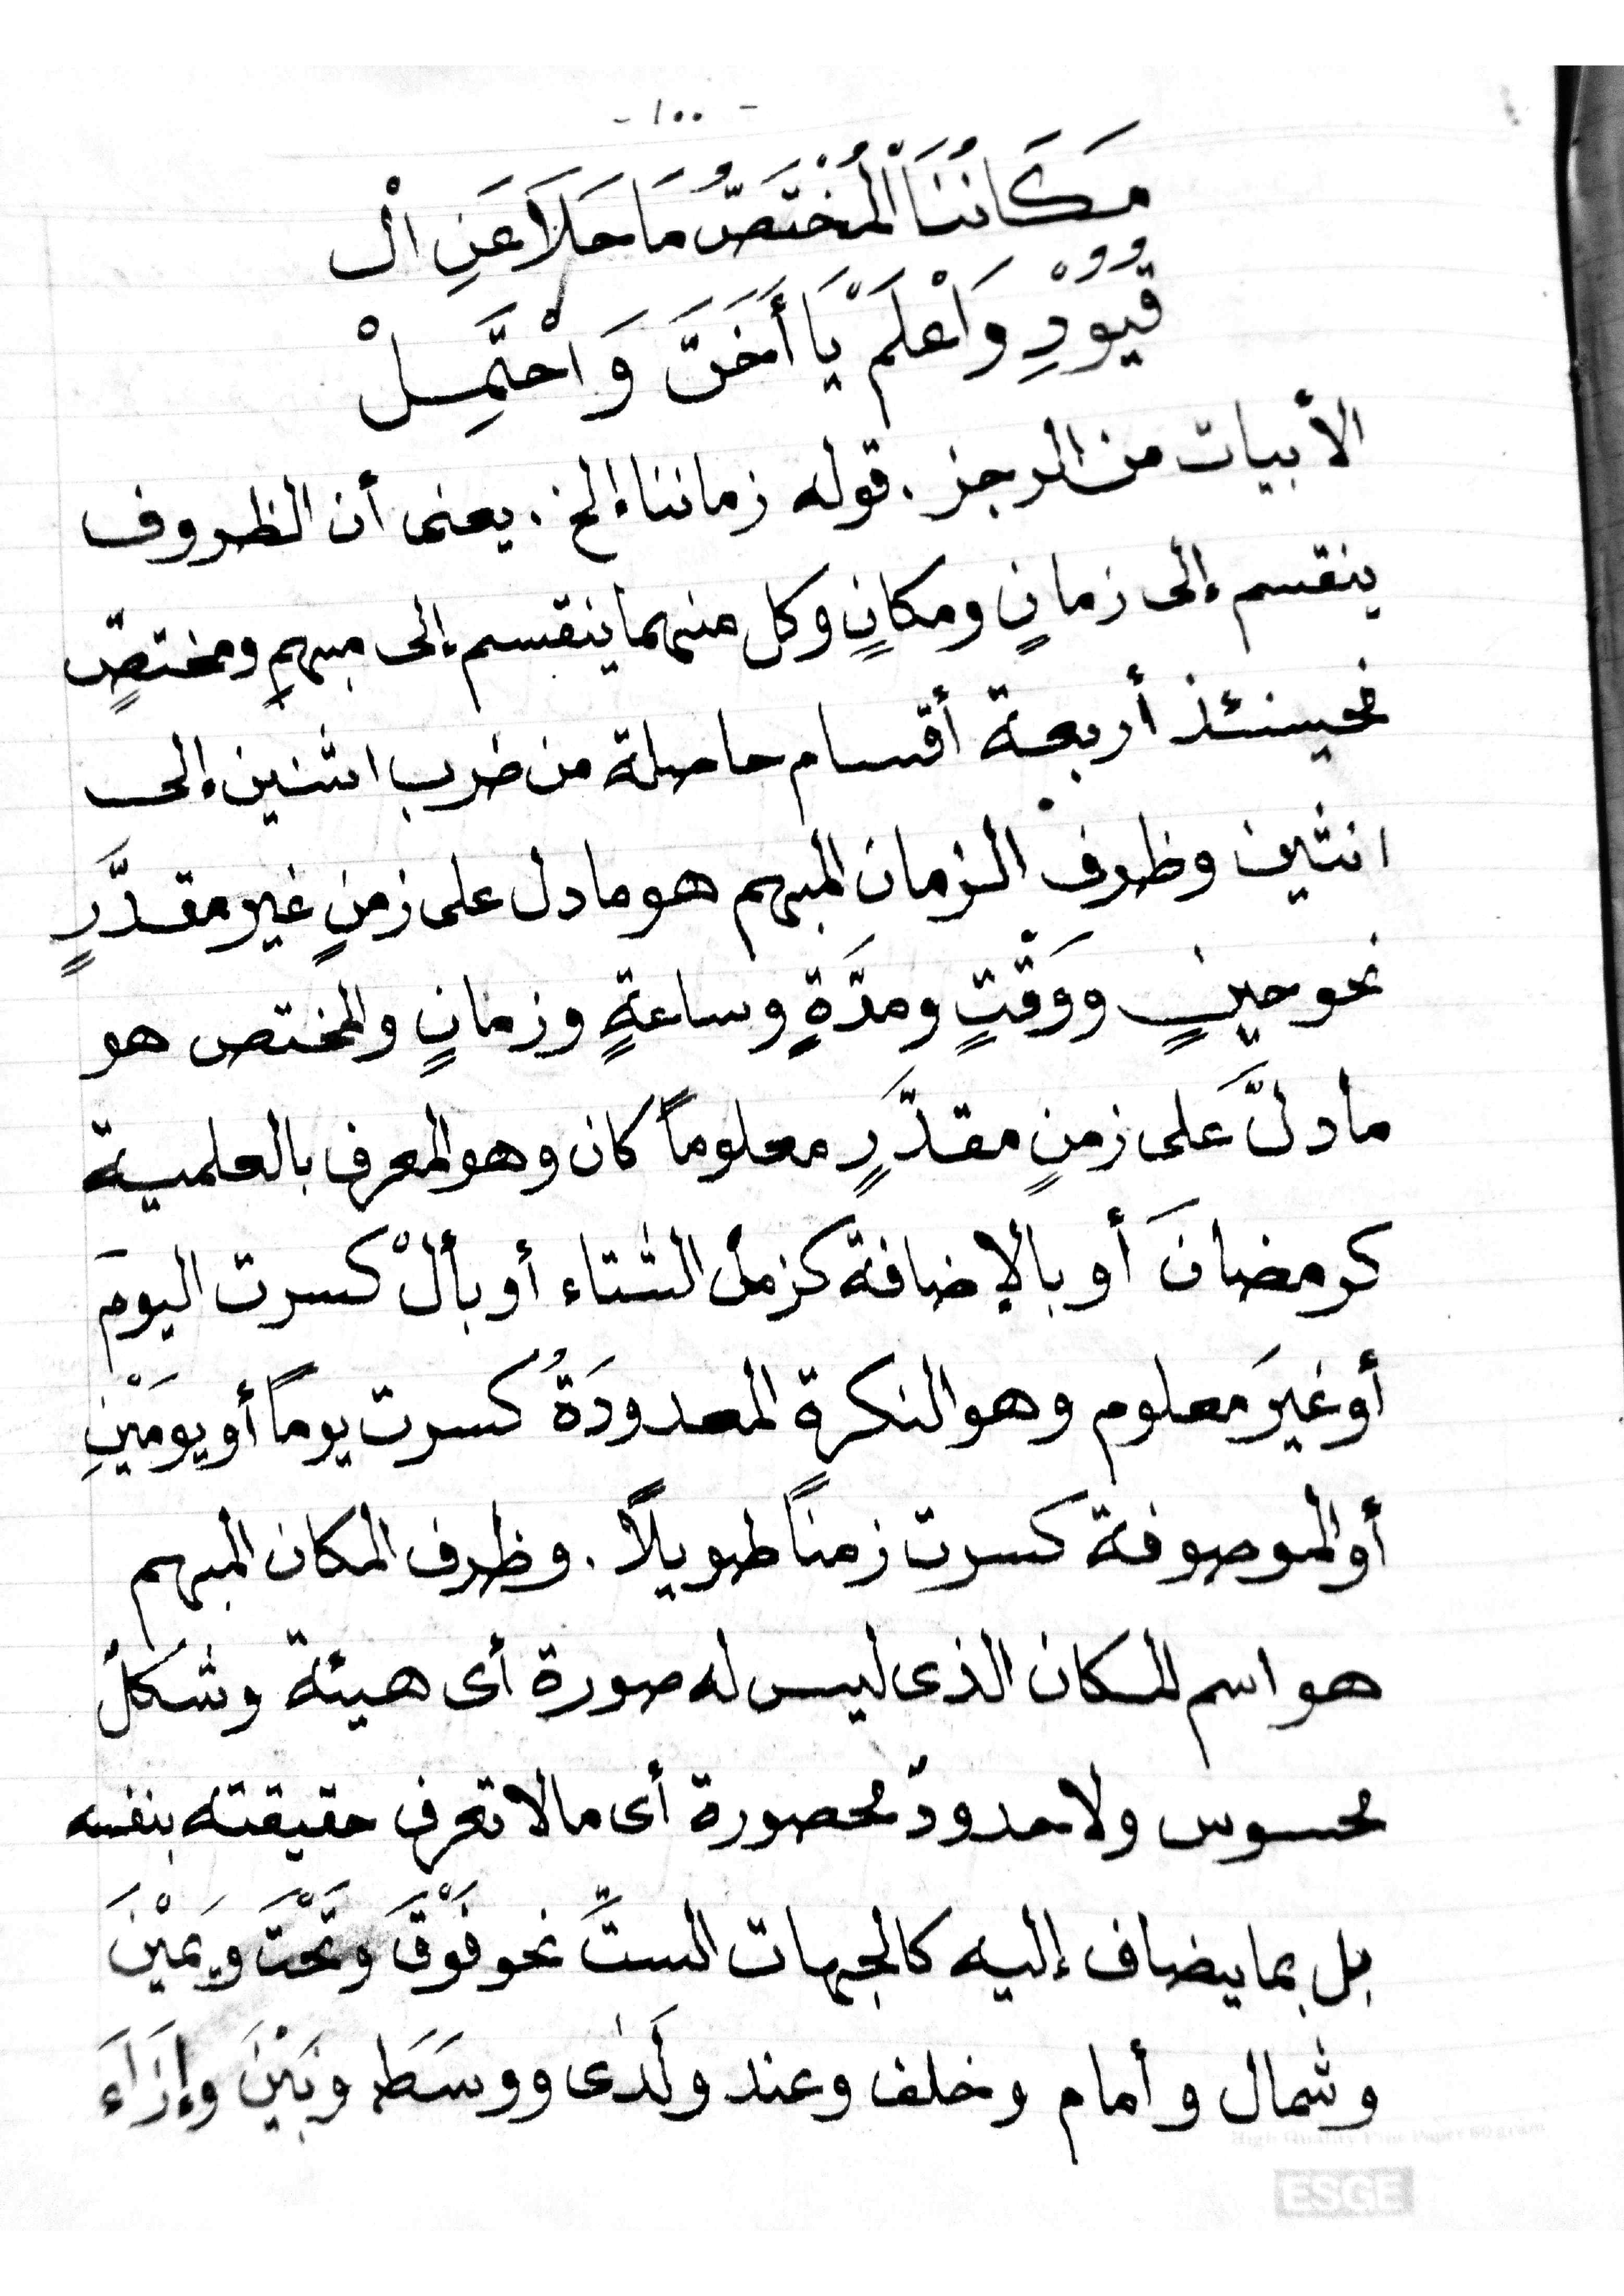 - ١٠٠ -
مَكَانُنَا الْمُخْتَصُّ مَا خَلَا عَنِ الْ
قُيُوْدِ وَاعْلَمْ يَا أَخَيَّ وَاحْتَمِلْ
الأبيات من الرجز . قوله زماننا إلخ . يعنى أن الظروف
ينقسم إلى زمانٍ ومكانٍ وكل منهما ينقسم إلى مبهمٍ ومختصٍّ
فحينئذ أربعة أقسام حاصلة من ضرب اثنين إلى
اثنين وظرف الزمان المبهم هو ما دل على زمنٍ غير مقدَّرٍ
نحو حينٍ ووَقْتٍ ومدَّةٍ وساعةٍ وزمانٍ والمختص هو
ما دلَّ على زمنٍ مقدَّرٍ معلوماً كان وهو المعرف بالعلمية
كرمضانَ أو بالإضافة كزمن الشتاء أو بألْ كسرت اليومَ
أو غيرَ معلوم وهو النكرة المعدودَةُ كسرت يوماً أو يومَيْنِ
أو الموصوفة كسرت زمناً طويلاً . وظرف المكان المبهم
هو اسم للمكان الذى ليس له صورة أى هيئة وشكلٌ
محسوس ولا حدودٌ محصورة أى مالا تعرف حقيقته بنفسه
بل بما يضاف إليه كالجهات الستِّ نحو فَوْقَ وتَحْتَ ويَمْيْنَ
وشمال وأمام وخلف وعند ولَدَى ووسَطَ وبَيْنَ وإِزَاءَ
High Quality Fine Paper 60 gram
ESGE